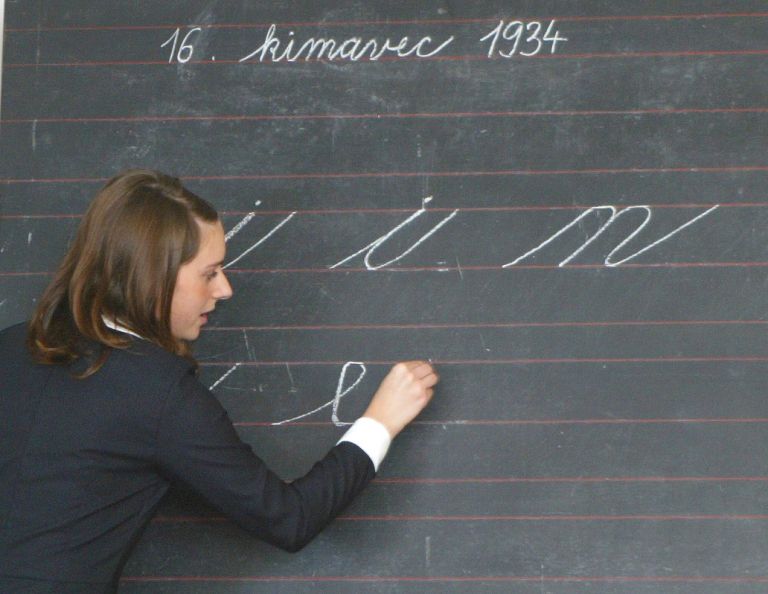 16. kimavec 1934
i i n
e